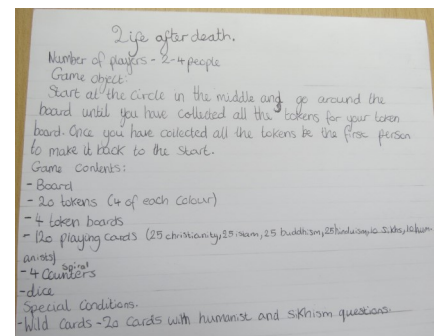 Life after death.
Number of players - 2-4 people
Game object:
Start at the circle in the middle and go around the
board until you have collected all the 5 tokens for your token
board. Once you have collected all the tokens be the first person
to make it back to the start.
Game contents:
- Board
- 20 tokens (4 of each colour)
- 4 token boards
- 120 playing cards (25 christianity, 25 islam, 25 buddhism, 25 hinduism, 10 sikhs, 10 hum
anists)
- 4 spiral counters
- dice
Special Conditions.
- Wild cards - 20 cards with humanist and sikhism questions.